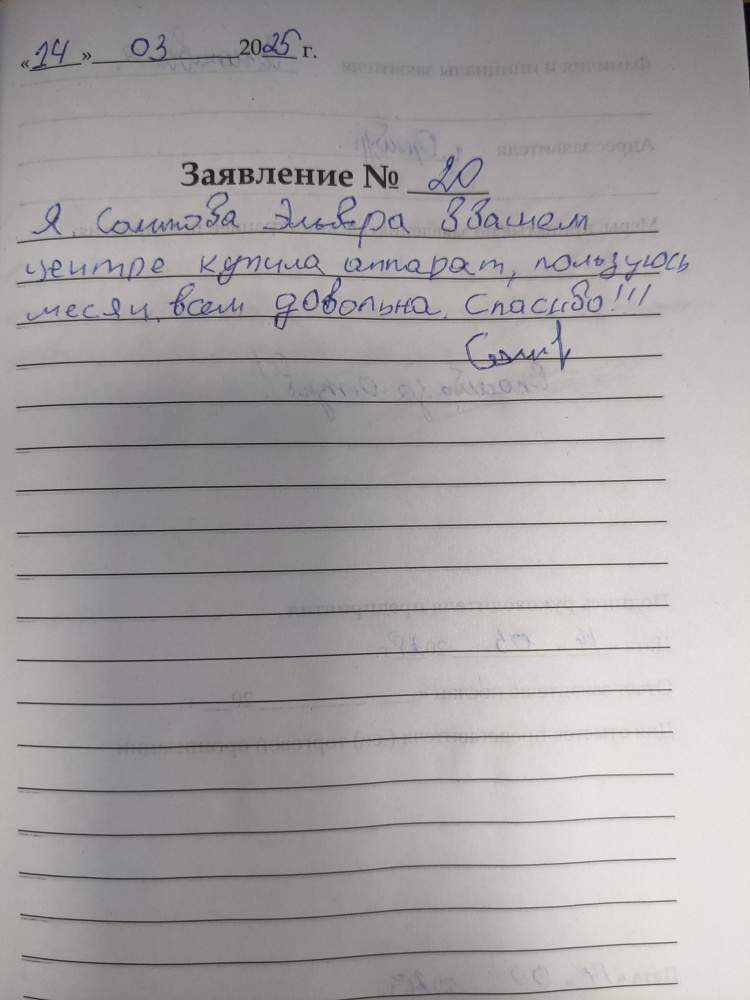 «14» 03 2025 г.
Заявление № 20
Я, Эльвера В Вашем
центре купила аппарат, пользуюсь
месяц, всем довольна. Спасибо!!!